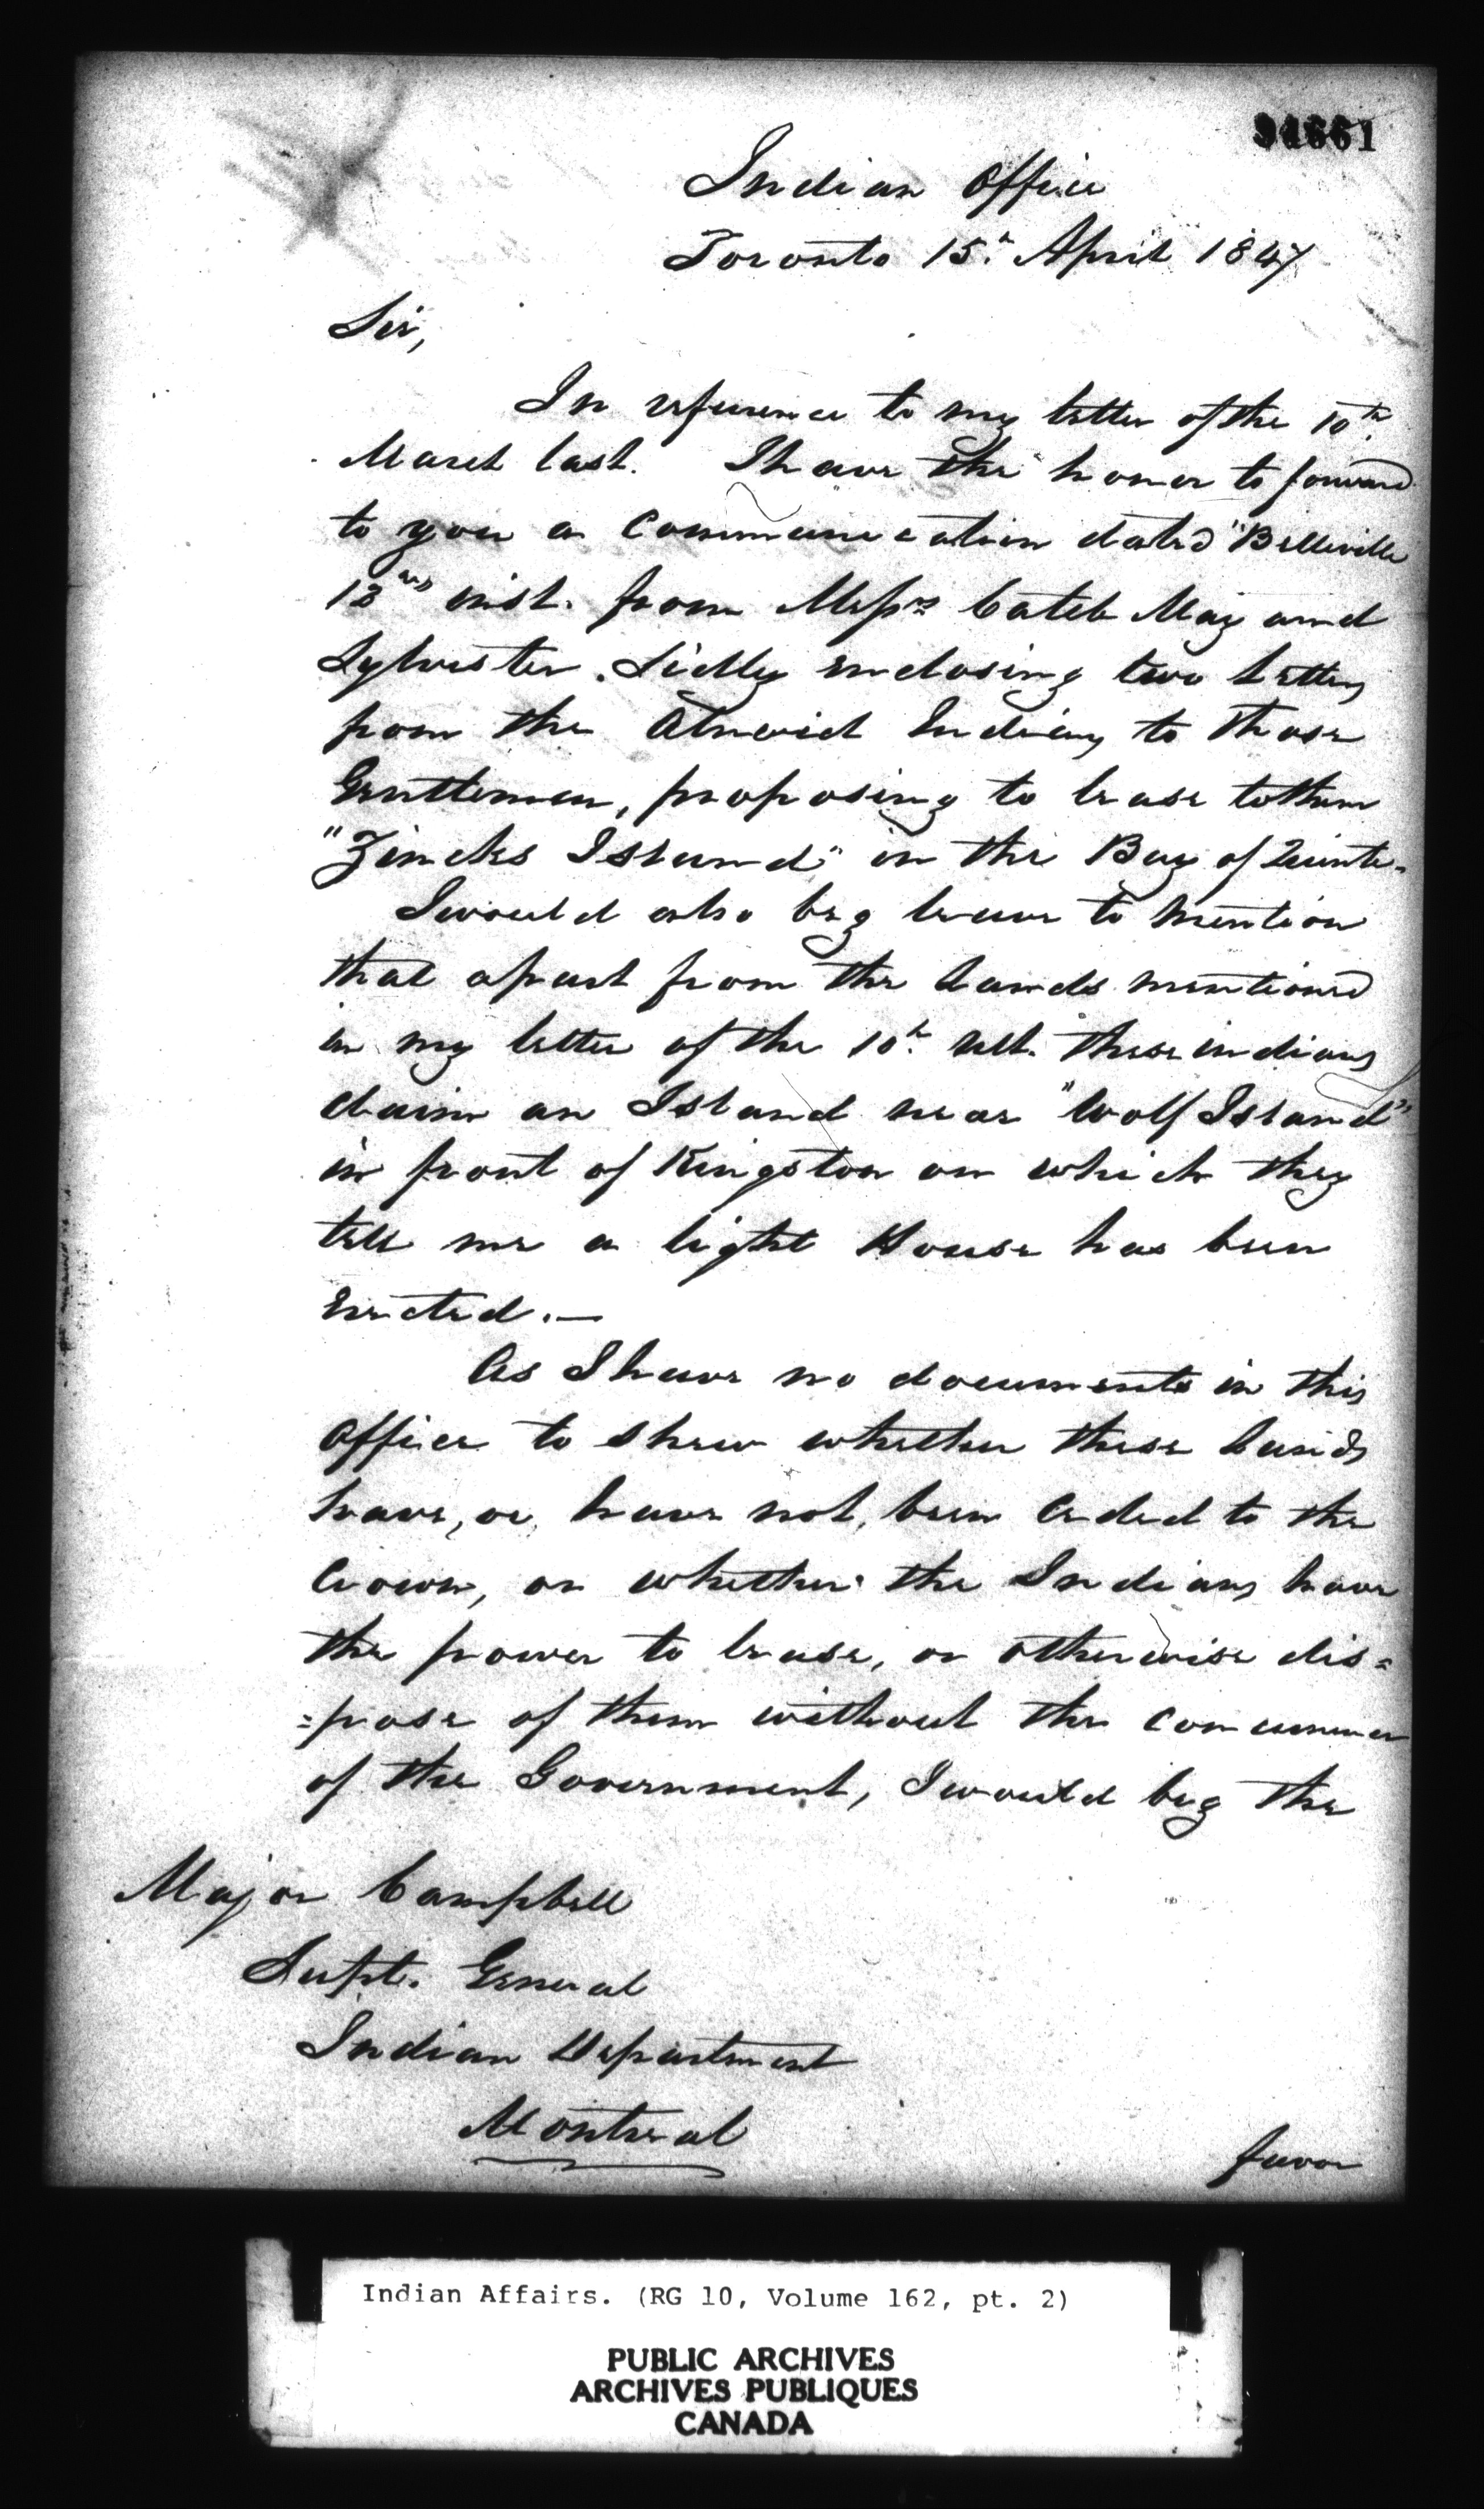 94661
Indian Office
Toronto 15th April 1847
Sir,
In reference to my letter of the 10th
March last. I have the honor to forward
to you a Communication dated "Belleville
inst. from Messrs Caleb May and
Sylvester Sidly enclosing two letters
from the Alnwick Indians to those
Gentlemen, proposing to lease to them
"Zincks Island" in the Bay of Quinte.
I would also beg leave to mention
that apart from the lands mentioned
in my letter of the 10th ult. these indians
claim an Island near "Wolf Island"
in front of Kingston on which they
tell me a light House has been
Erected.—
As I have no documents in this
Office to shew whether these lands
have, or, have not, been Ceded to the
Crown, or whether the Indians have
the power to lease, or otherwise dis=
=pose of them without the concurrence
of the Government, I would beg the
Major Campbell
Supt. General
Indian Department
Montreal
favor
Indian Affairs. (RG 10, Volume 162, pt. 2)
PUBLIC ARCHIVES
ARCHIVES PUBLIQUES
CANADA